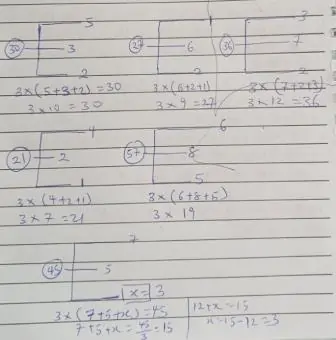 5 1 3
30 3 27 6 36 7
2 2 2
3×(5+3+2)=30 3×(6+2+1) 3×(7+2+3)
3×10=30 3×9=27 3×12=36
4 6
21 2 57 8
1 5
3×(4+2+1) 3×(6+8+5)
3×7=21 3×19
7
45 5
x=3
3×(7+5+x)=45 12+x=15
7+5+x=45/3=15 x=15-12=3